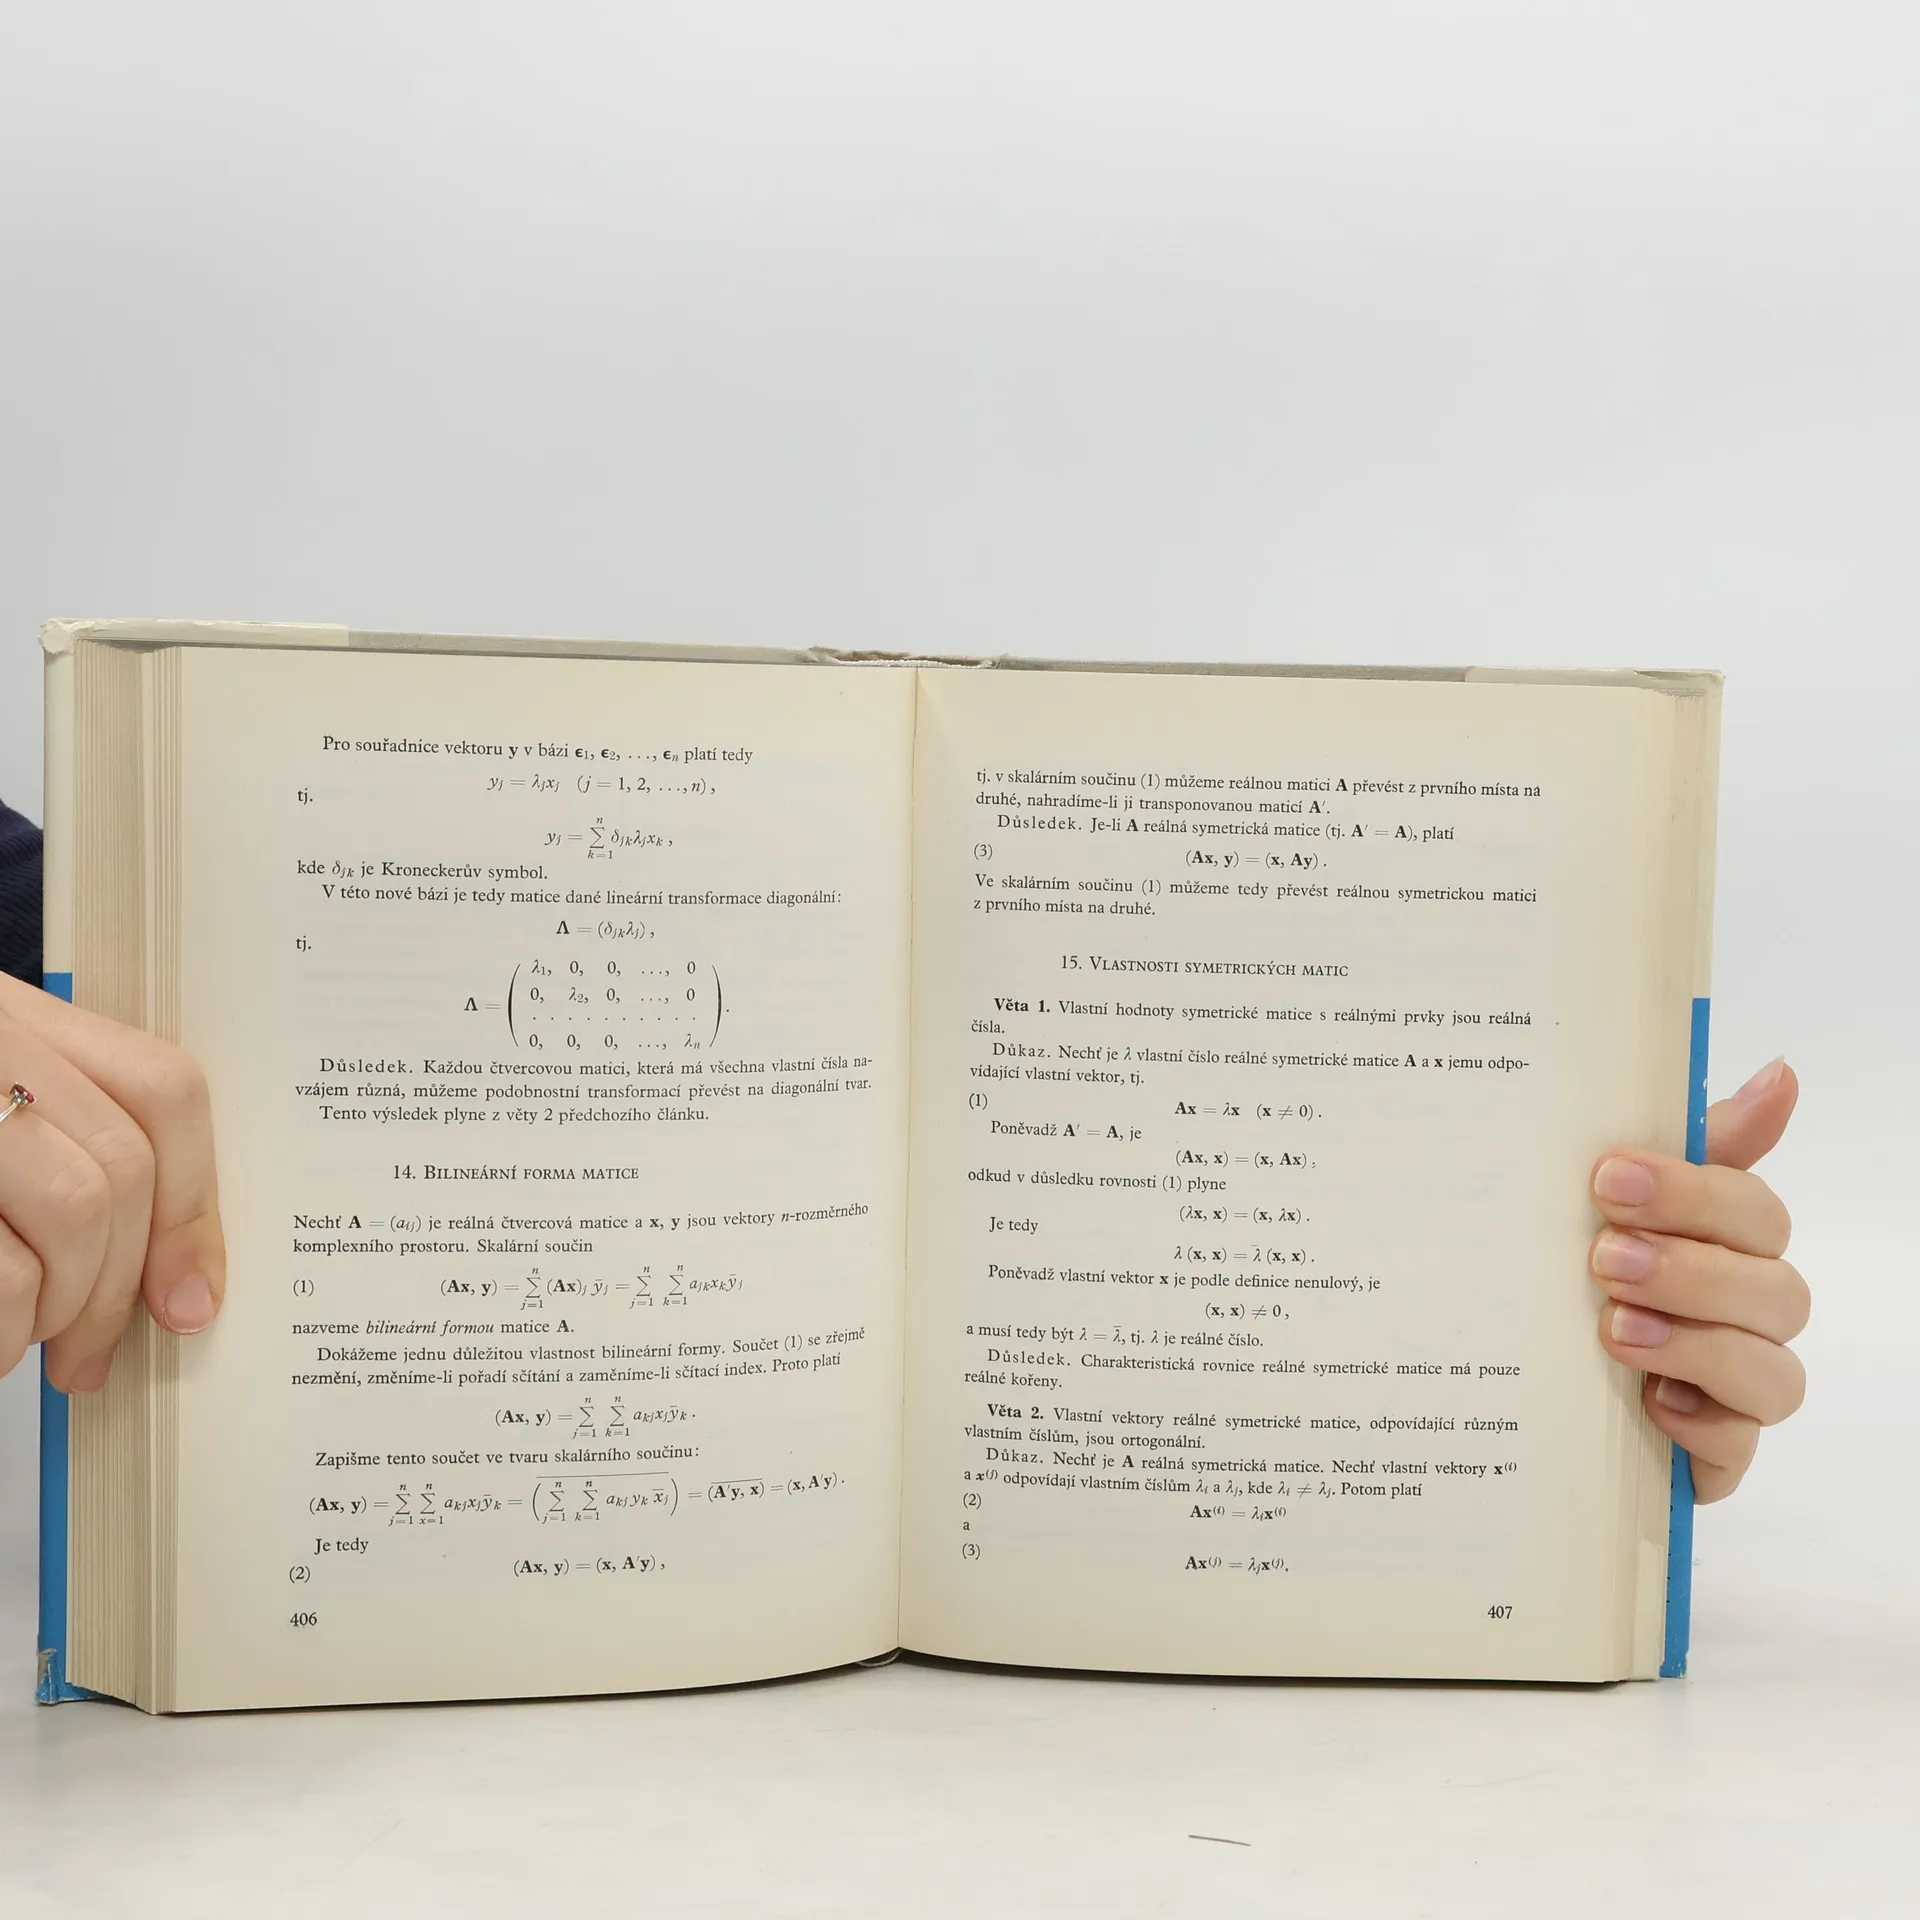 Pro souřadnice vektoru y v bázi ϵ₁, ϵ₂, ..., ϵₙ platí tedy
yⱼ = λⱼxⱼ (j = 1, 2, ..., n),
tj.
yⱼ = ∑ₖ₌₁ⁿ δⱼₖλⱼxₖ,
kde δⱼₖ je Kroneckerův symbol.
V této nové bázi je tedy matice dané lineární transformace diagonální:
Λ = (δⱼₖλⱼ),
tj.
λ₁, 0, 0, ..., 0
0, λ₂, 0, ..., 0
Λ = . . . . . . . . . .
0, 0, 0, ..., λₙ
Důsledek. Každou čtvercovou matici, která má všechna vlastní čísla na-
vzájem různá, můžeme podobnostní transformací převést na diagonální tvar.
Tento výsledek plyne z věty 2 předchozího článku.
14. BILINEÁRNÍ FORMA MATICE
Nechť A = (aᵢⱼ) je reálná čtvercová matice a x, y jsou vektory n-rozměrného
komplexního prostoru. Skalární součin
(1) (Ax, y) = ∑ⱼ₌₁ⁿ (Ax)ⱼ ȳⱼ = ∑ⱼ₌₁ⁿ ∑ₖ₌₁ⁿ aⱼₖxₖȳⱼ
nazveme bilineární formou matice A.
Dokážeme jednu důležitou vlastnost bilineární formy. Součet (1) se zřejmě
nezmění, změníme-li pořadí sčítání a zaměníme-li sčítací index. Proto platí
(Ax, y) = ∑ⱼ₌₁ⁿ ∑ₖ₌₁ⁿ aₖⱼxⱼȳₖ.
Zapišme tento součet ve tvaru skalárního součinu:
(Ax, y) = ∑ⱼ₌₁ⁿ ∑ₓ₌₁ⁿ aₖⱼxⱼȳₖ = \overline{(∑ⱼ₌₁ⁿ ∑ₖ₌₁ⁿ aₖⱼ yₖ x̄ⱼ)} = \overline{(A′y, x)} = (x, A′y).
Je tedy
(2) (Ax, y) = (x, A′y),
406
tj. v skalárním součinu (1) můžeme reálnou matici A převést z prvního místa na
druhé, nahradíme-li ji transponovanou maticí A′.
Důsledek. Je-li A reálná symetrická matice (tj. A′ = A), platí
(3) (Ax, y) = (x, Ay).
Ve skalárním součinu (1) můžeme tedy převést reálnou symetrickou matici
z prvního místa na druhé.
15. VLASTNOSTI SYMETRICKÝCH MATIC
Věta 1. Vlastní hodnoty symetrické matice s reálnými prvky jsou reálná
čísla.
Důkaz. Nechť je λ vlastní číslo reálné symetrické matice A a x jemu odpo-
vídající vlastní vektor, tj.
(1) Ax = λx (x ≠ 0).
Poněvadž A′ = A, je
(Ax, x) = (x, Ax),
odkud v důsledku rovnosti (1) plyne
(λx, x) = (x, λx).
Je tedy
λ (x, x) = λ̄ (x, x).
Poněvadž vlastní vektor x je podle definice nenulový, je
(x, x) ≠ 0,
a musí tedy být λ = λ̄, tj. λ je reálné číslo.
Důsledek. Charakteristická rovnice reálné symetrické matice má pouze
reálné kořeny.
Věta 2. Vlastní vektory reálné symetrické matice, odpovídající různým
vlastním číslům, jsou ortogonální.
Důkaz. Nechť je A reálná symetrická matice. Nechť vlastní vektory x⁽ⁱ⁾
a x⁽ʲ⁾ odpovídají vlastním číslům λᵢ a λⱼ, kde λᵢ ≠ λⱼ. Potom platí
(2) Ax⁽ⁱ⁾ = λᵢx⁽ⁱ⁾
a
(3) Ax⁽ʲ⁾ = λⱼx⁽ʲ⁾.
407